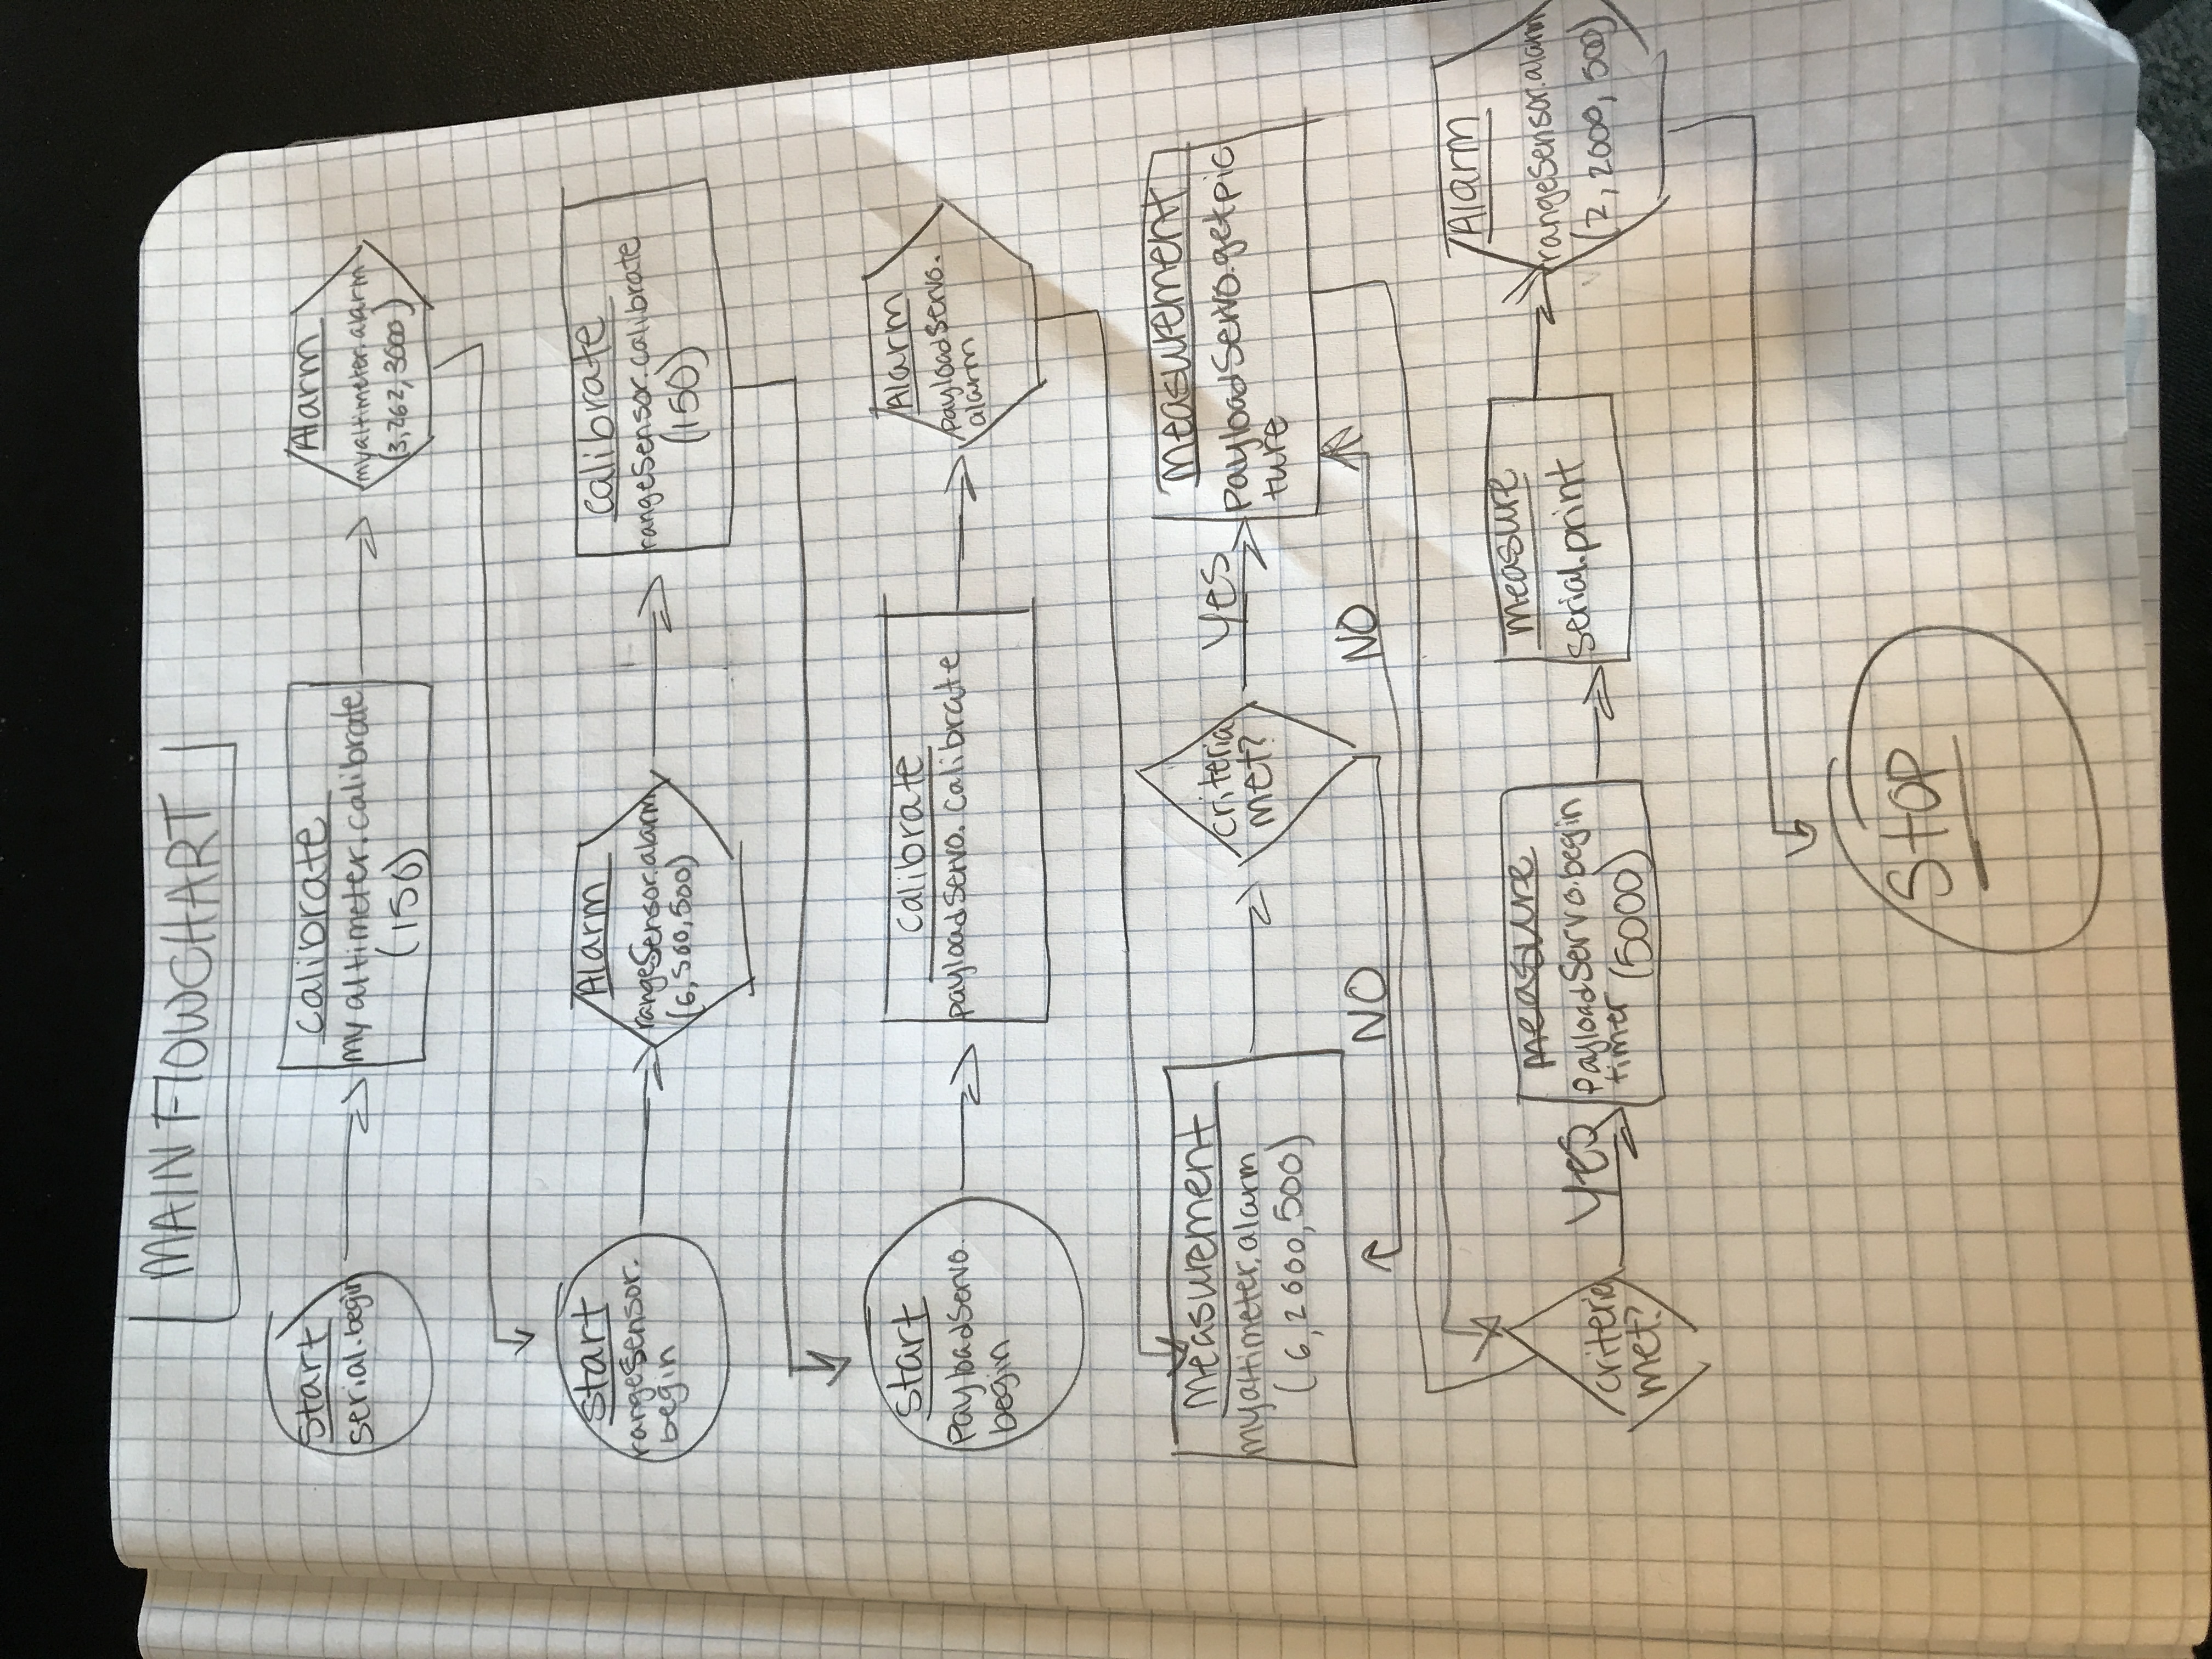 MAIN FLOWCHART
Start
serial.begin
Calibrate
myaltimeter.calibrate
(150)
Alarm
myaltimeter.alarm
(3,262,3000)
Start
rangeSensor.
begin
Alarm
rangeSensor.alarm
(6,500,500)
Calibrate
rangeSensor.calibrate
(150)
Start
PayloadServo.
begin
Calibrate
payloadServo.calibrate
Alarm
PayloadServo.
alarm
Measurement
myaltimeter.alarm
(6,2000,500)
criteria
met?
Yes
Measurement
PayloadServo.getpic
ture
NO
NO
criteria
met?
Yes
Measure
PayloadServo.begin
timer (5000)
Measure
serial.print
Alarm
rangeSensor.alarm
(2,2000,500)
STOP